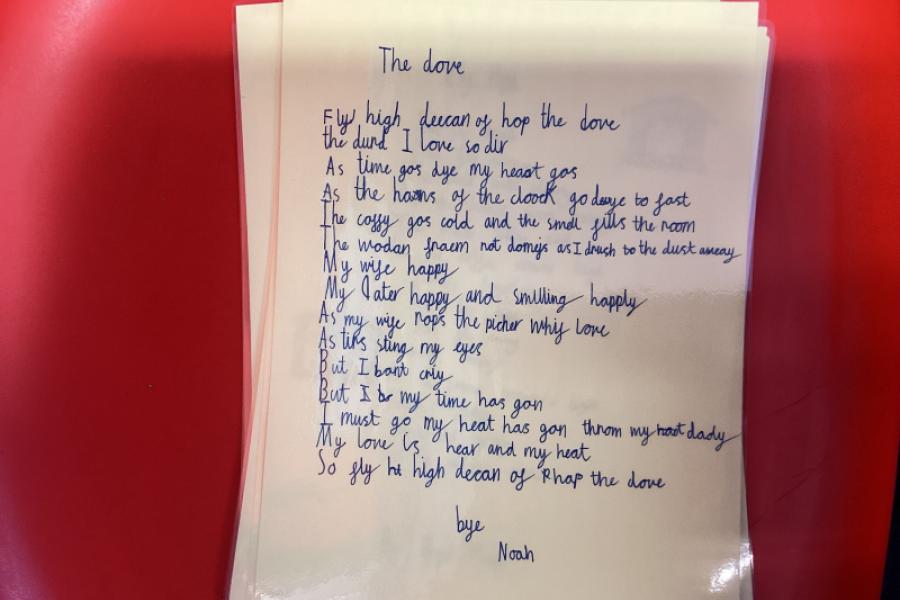 The dove
Fly high deecan of hop the dove
the durd I love so dir
As time gos dye my heart gos
As the hawns of the cloock go deye to fast
The coffy gos cold and the smell fills the room
The wodan fraem not domejs as I drush to the dust aweay
My wife happy
My Dater happy and smilling happly
As my wife raps the picher whif love
As tirs sting my eyes
But I bant criy
But I do my time has gon
I must go my heat has gon throm my dady
My love is hear and my heat
So fly high decan of Rhap the dove
bye
Noah